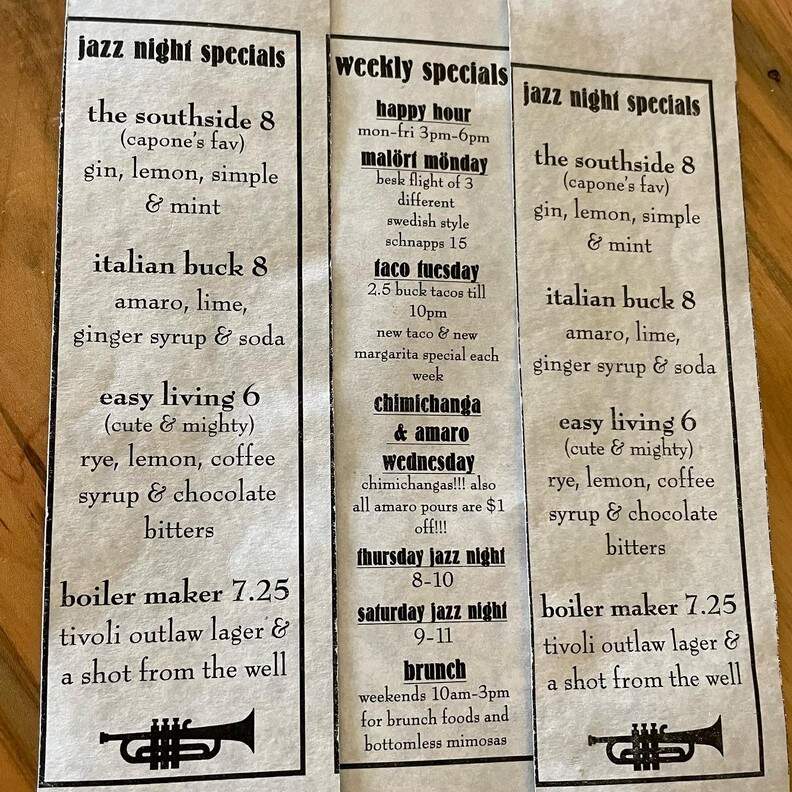 jazz night specials
the southside 8
(capone's fav)
gin, lemon, simple
& mint
italian buck 8
amaro, lime,
ginger syrup & soda
easy living 6
(cute & mighty)
rye, lemon, coffee
syrup & chocolate
bitters
boiler maker 7.25
tivoli outlaw lager &
a shot from the well
weekly specials
happy hour
mon-fri 3pm-6pm
malört mönday
besk flight of 3
different
swedish style
schnapps 15
taco tuesday
2.5 buck tacos till
10pm
new taco & new
margarita special each
week
chimichanga
& amaro
wednesday
chimichangas!!! also
all amaro pours are $1
off!!!
thursday jazz night
8-10
saturday jazz night
9-11
brunch
weekends 10am-3pm
for brunch foods and
bottomless mimosas
jazz night specials
the southside 8
(capone's fav)
gin, lemon, simple
& mint
italian buck 8
amaro, lime,
ginger syrup & soda
easy living 6
(cute & mighty)
rye, lemon, coffee
syrup & chocolate
bitters
boiler maker 7.25
tivoli outlaw lager &
a shot from the well